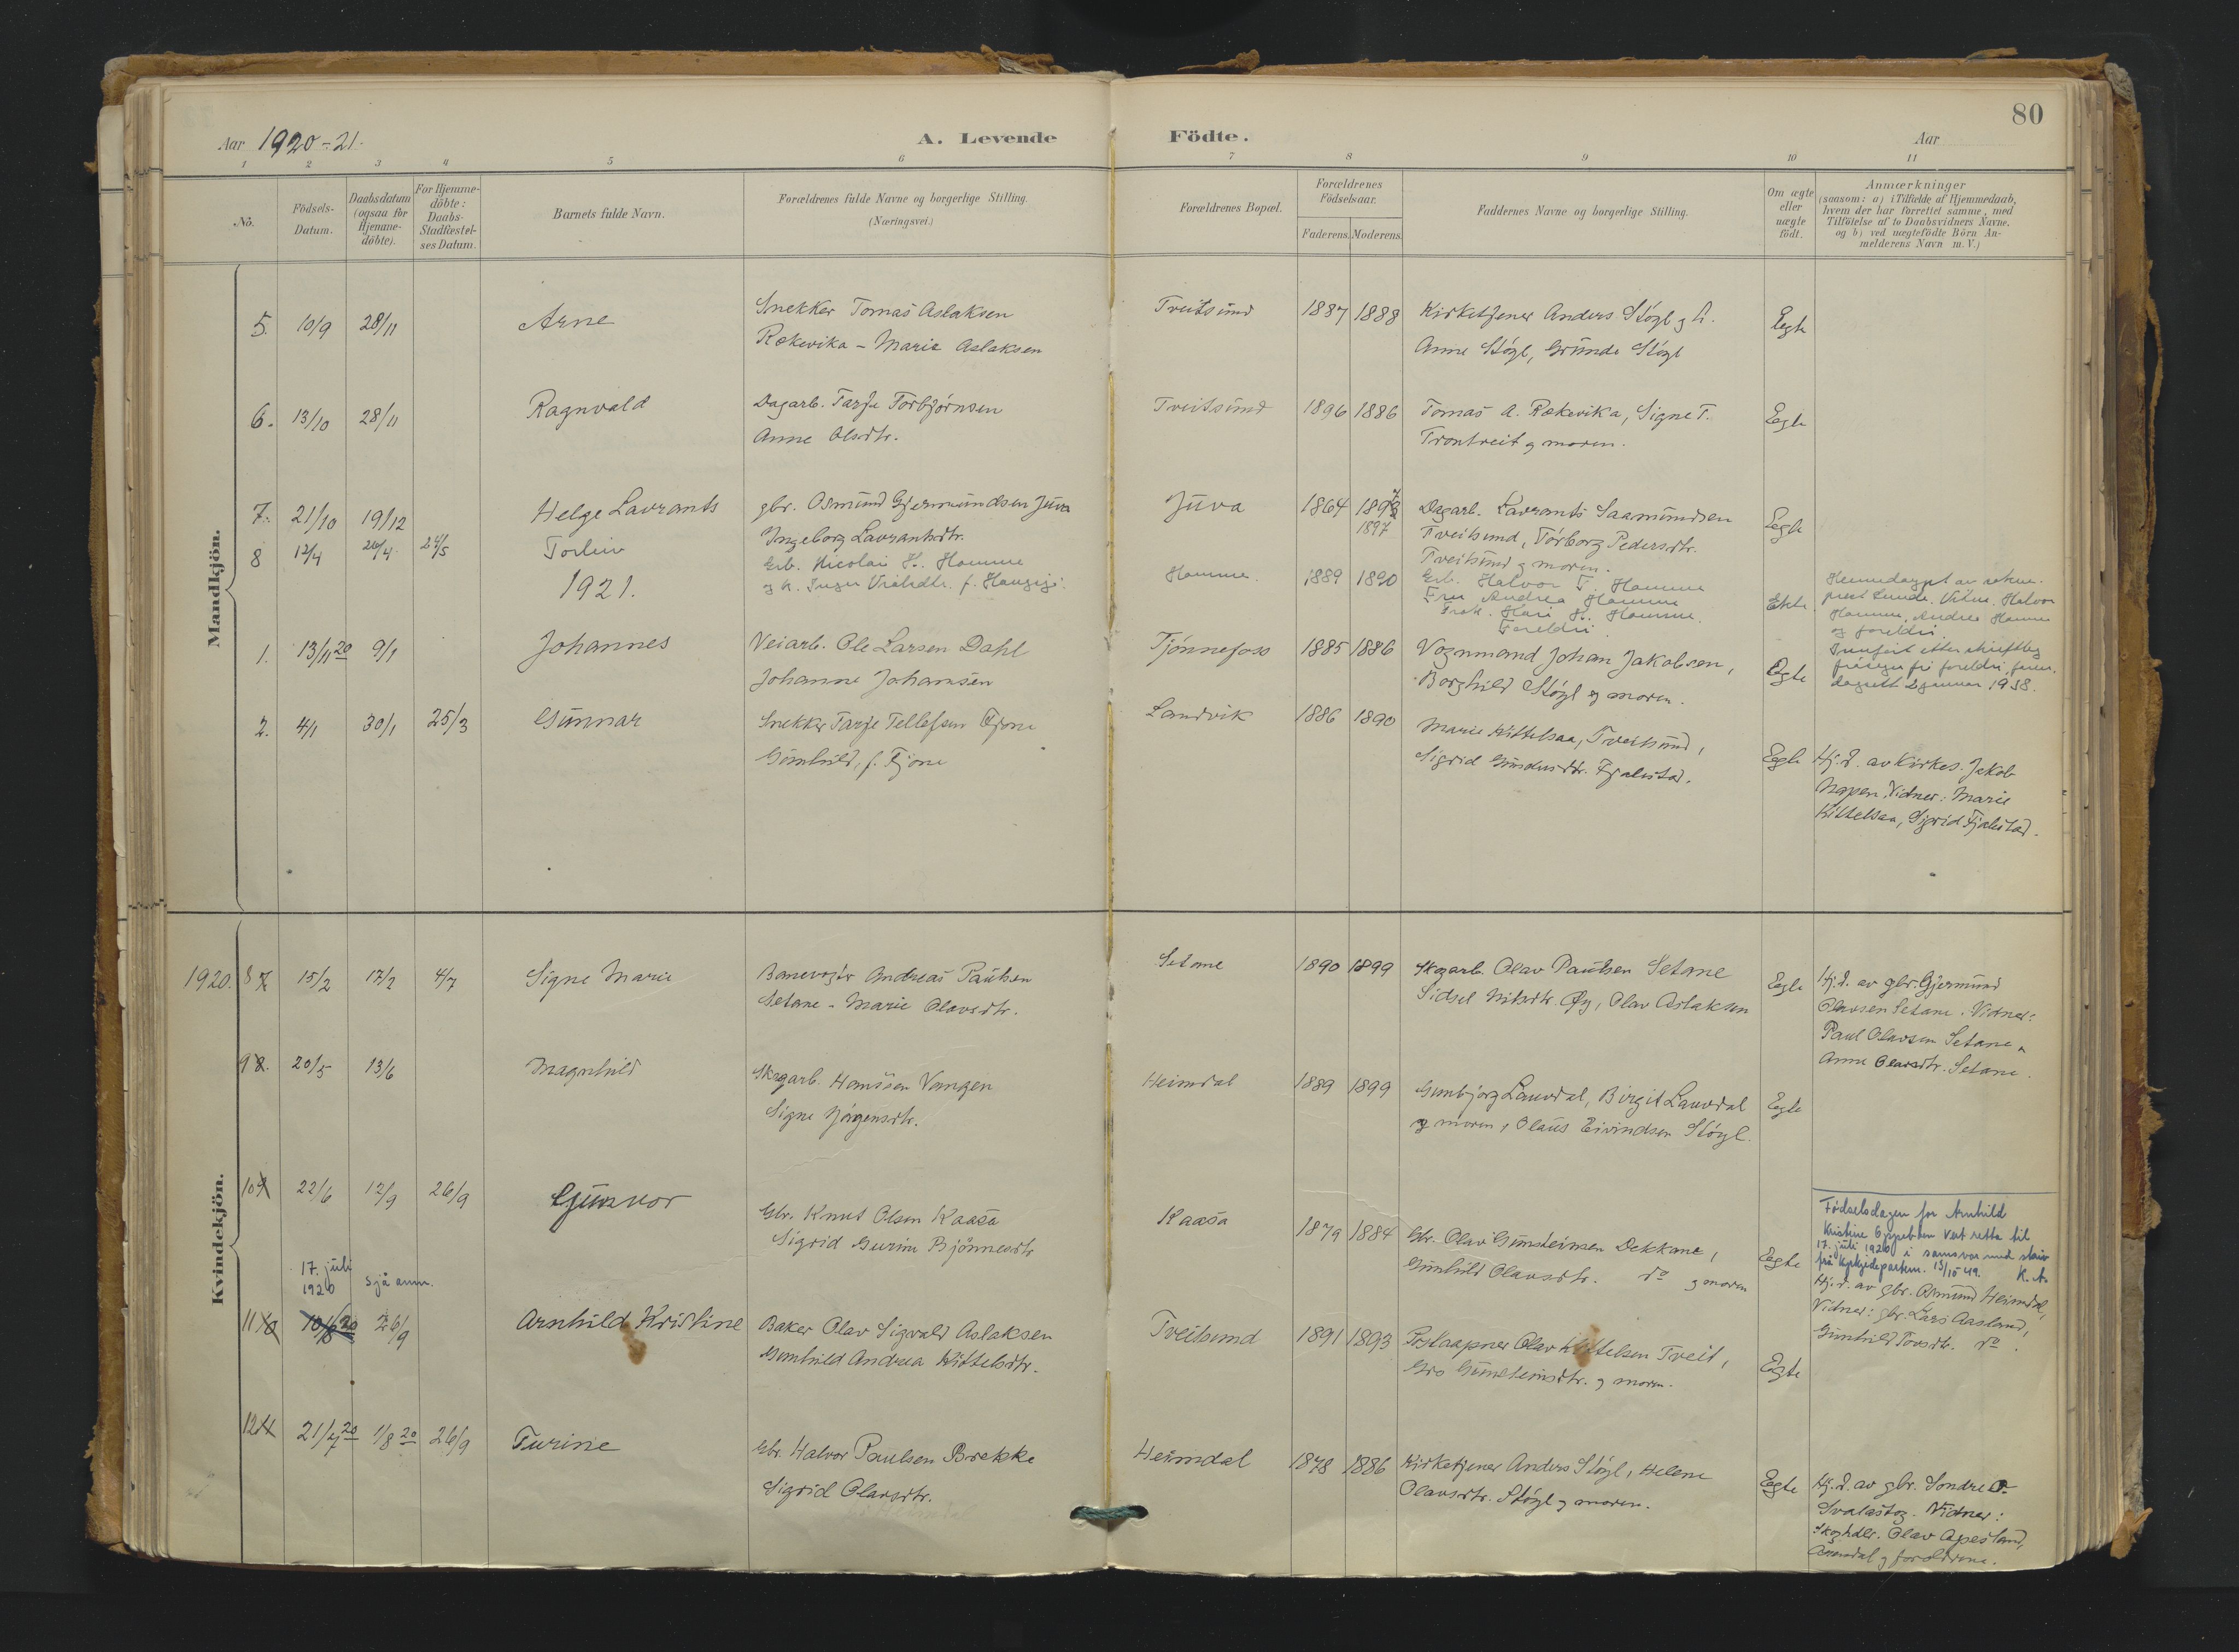 80
Aar 1920-21.
A. Levende Födte.
Aar
1 2 3 4 5 6 7 8 9 10 11
No.
Födsels-Datum.
Daabsdatum (ogsaa for Hjemme-döbte).
For Hjemme-döbte: Daabs-Stadfæstel-ses Datum.
Barnets fulde Navn.
Forældrenes fulde Navne og borgerlige Stilling.
(Næringsvei.)
Forældrenes Bopæl.
Forældrenes Födselsaar.
Faderens. Moderens.
Faddernes Navne og borgerlige Stilling.
Om ægte eller uægte födt.
Anmærkninger
(saasom: a) i Tilfælde af Hjemmedaab,
hvem der har forrettet samme, med
Tilföielse af to Daabsvidners Navne,
og b) ved uægtefödte Börn An-
melderens Navn m. V.)
Mandkjön.
5. 10/9 28/11 Arne
Snekker Tomas Aslaksen
Rækevika - Marie Aslaksen
Treitsund 1887 1888
Kirketjener Anders Støyl
Anne Støyl, Gunde Støyl
Egte
6. 13/10 28/11 Ragnvald
Dagarb. Tarje Torbjørnsen
Anne Olsdtr.
Treitsund 1896 1886
Tomas A. Rækevika, Signe T.
Trontveit og moren.
Egte
7. 21/10 19/12 Helge Lavrants
gbr. Osmund Gjermundsen Juva
Ingeborg Lavrantsdtr.
Juva 1864
1897
Dagarb. Lavrants Saamundsen
Tveitsund, Torborg Pedersdtr.
Tveitsund og moren.
Egte
8 12/4 26/4 24/5 Torleiv
Grb. Nicolai H. Hamme
Hamme. 1889 1890
Grb. Halvor T. Hamme
Fru Andrea Hamme
Frøk. Kari H. Hamme.
Foreldri.
Ekte.
Heimedøypt av sokne-
prest Lunde. Vitne. Halvor
Hamme, Andrea Hamme
og foreldri.
Innført etter skriftleg
fråsegn frå foreldri
1938.
1921.
1. 13/11 20 9/1 Johannes
Veiarb. Ole Larsen Dahl
Johanne Johansen
Tjønnefoss 1885 1886
Vognmand Johan Jakobsen,
Borghild Støyl og moren.
Egte
2. 4/1 30/1 25/3 Gunnar
Snekker Tarje Tellefsen Fjone
Gunhild, f. Fjone
Landvik 1886 1890
Marie Kittelsaa, Tveitsund,
Sigrid Fjalestad.
Egte
Hj.d. av Kirkes. Jakob
Napen. Vidner: Marie
Kittelsaa, Sigrid Fjalestad.
Kvindekjön.
1920. 8 7 15/2 17/2 4/7 Signe Marie
Banevogtr Andreas Paulsen
Setane - Marie Olavsdtr.
Setane 1890 1899
Skogarb. Olav Paulsen Setane
Sidsel Nilsdtr. Øy, Olav Aslaksen
Egte
Hj.d. av gbr. Gjermund
Olavsen Setane. Vidner:
Paul Olavsen Setane
Anne Olavsdtr. Setane.
9 8. 20/5 13/6 Magnhild
Skogarb. Hansen Vangen
Signe Jørgensdtr.
Heimdal 1889 1899
Gunbjørg Lauvdal, Birgit Lauvdal
og moren, Olaus Eivindsen Støyl.
Egte
10 9 22/6 12/9 26/9 Gunvor
Gbr. Knut Olsen Kaasa
Sigrid Gurine Bjønnesdtr
Kaasa 1879 1884
Gbr. Olav Gunsteinsen Dekkane,
Gunhild Olavsdtr. do og moren
Egte
Fødselsdagen for Arnhild
Kristine vert retta til
17. juli 1920 i samsvar med skriv
frå Kyrkjedepartem. 13/10 49. K. A.
Hj.d. av gbr. Osmund Heimdal,
Vidner: gbr. Lars Aasland,
Gunhild Tovsdtr. do.
17. juli
1920 sjå anm.
11 10 10/8 20 26/9 Arnhild Kristine
Baker Olav Sigvald Aslaksen
Gunhild Andrea Kittelsdtr.
Tveitsund 1891 1893
Postaapner Olav Kittelsen Tveit,
Gro Gunsteinsdtr. og moren.
Egte
12 11 21/7 20 1/8 20 26/9 Turine
Gbr. Halvor Paulsen Brekke
Sigrid Olavsdtr.
Heimdal 1878 1886
Kirketjener Anders Støyl, Helene
Olavsdtr. Støyl og moren.
Egte
Hj.d. av gbr. Sondre O.
Svalastog. Vidner:
Skoghdlr. Olav Apesland,
og forældrene.